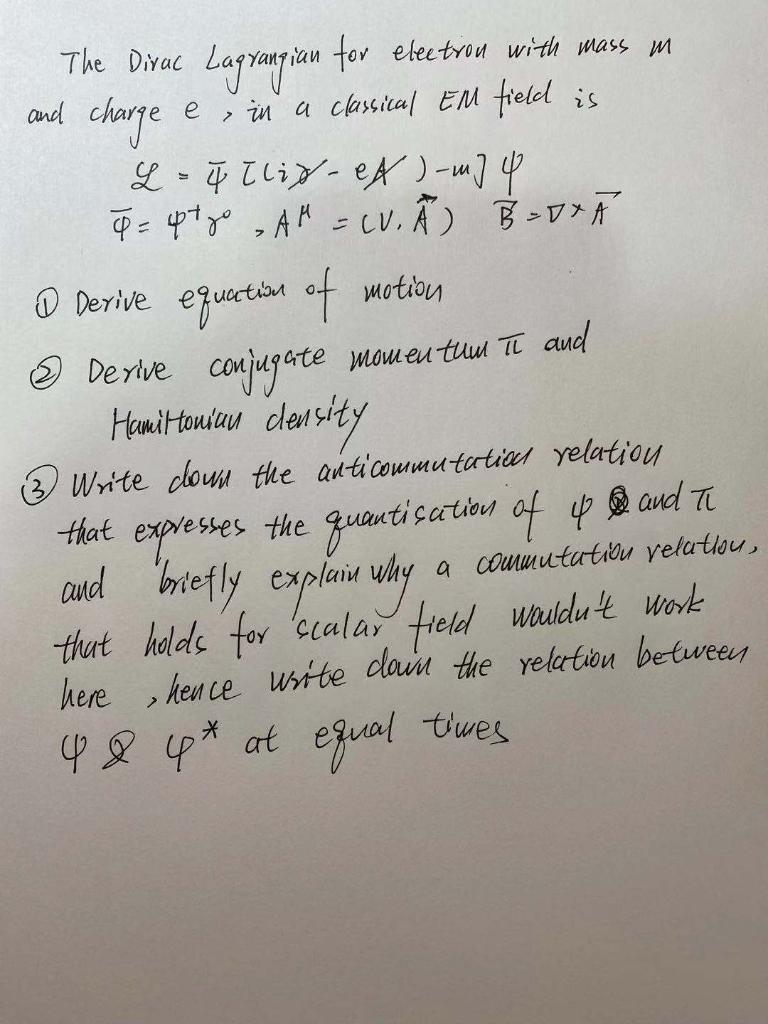 The Dirac Lagrangian for electron with mass m
and charge e , in a classical EM field is
ℒ = ψ̄ [(i∂̸ - eA̸ ) -m] ψ
ψ̄ = ψ†γ⁰ , Aᵘ = (V, A⃗) B⃗ = ∇ × A⃗
① Derive equation of motion
② Derive conjugate momentum π and
Hamiltonian density
③ Write down the anticommutation relation
that expresses the quantisation of ψ and π
and briefly explain why a commutation relation,
that holds for scalar field wouldn't work
here , hence write down the relation between
ψ & ψ* at equal times